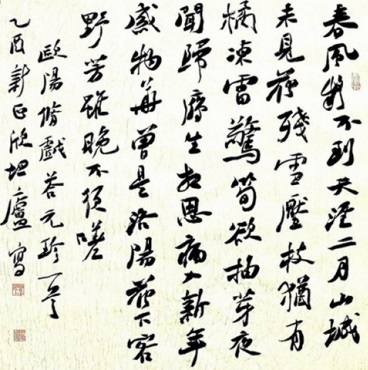 春風疑不到天涯二月山城
未見花殘雪壓枝猶有
橘凍雷驚筍欲抽芽夜
聞歸雁生鄉思病入新年
感物華曾是洛陽花下客
野芳雖晚不須嗟
歐陽脩戲答元珍一首
乙酉新正於坦廬寫